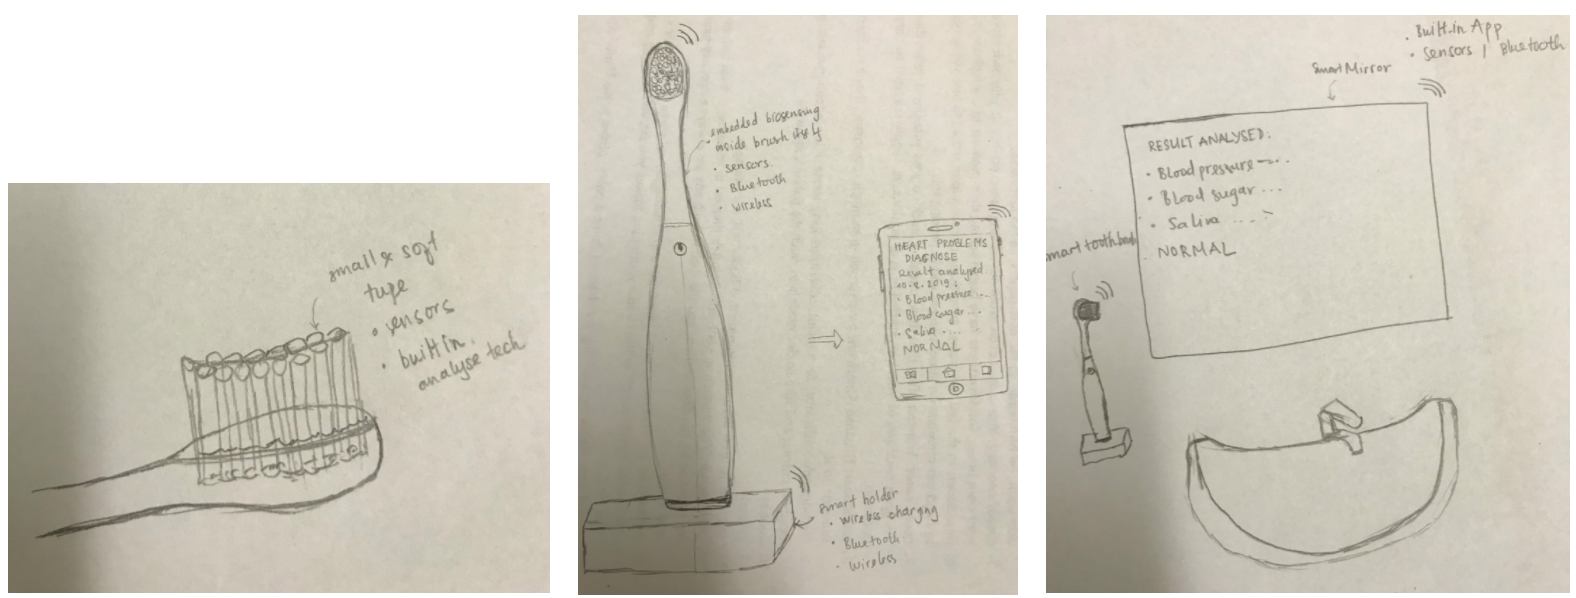 small & soft
tube
• sensors
• built in
analyse tech
embedded biosensing
• inside brush itself
• sensors
• Bluetooth
• wireless
HEART PROBLEMS
DIAGNOSE
Result analysed
10.2.2019:
• Blood pressure ...
• Blood sugar ...
• Saliva ....
NORMAL
smart holder
• wireless charging
• Bluetooth
• wireless
• Built.in App
• sensors | Bluetooth
Smart Mirror
RESULT ANALYSED:
• Blood pressure ...
• Blood sugar ...
• Saliva ....
NORMAL
smart toothbrush